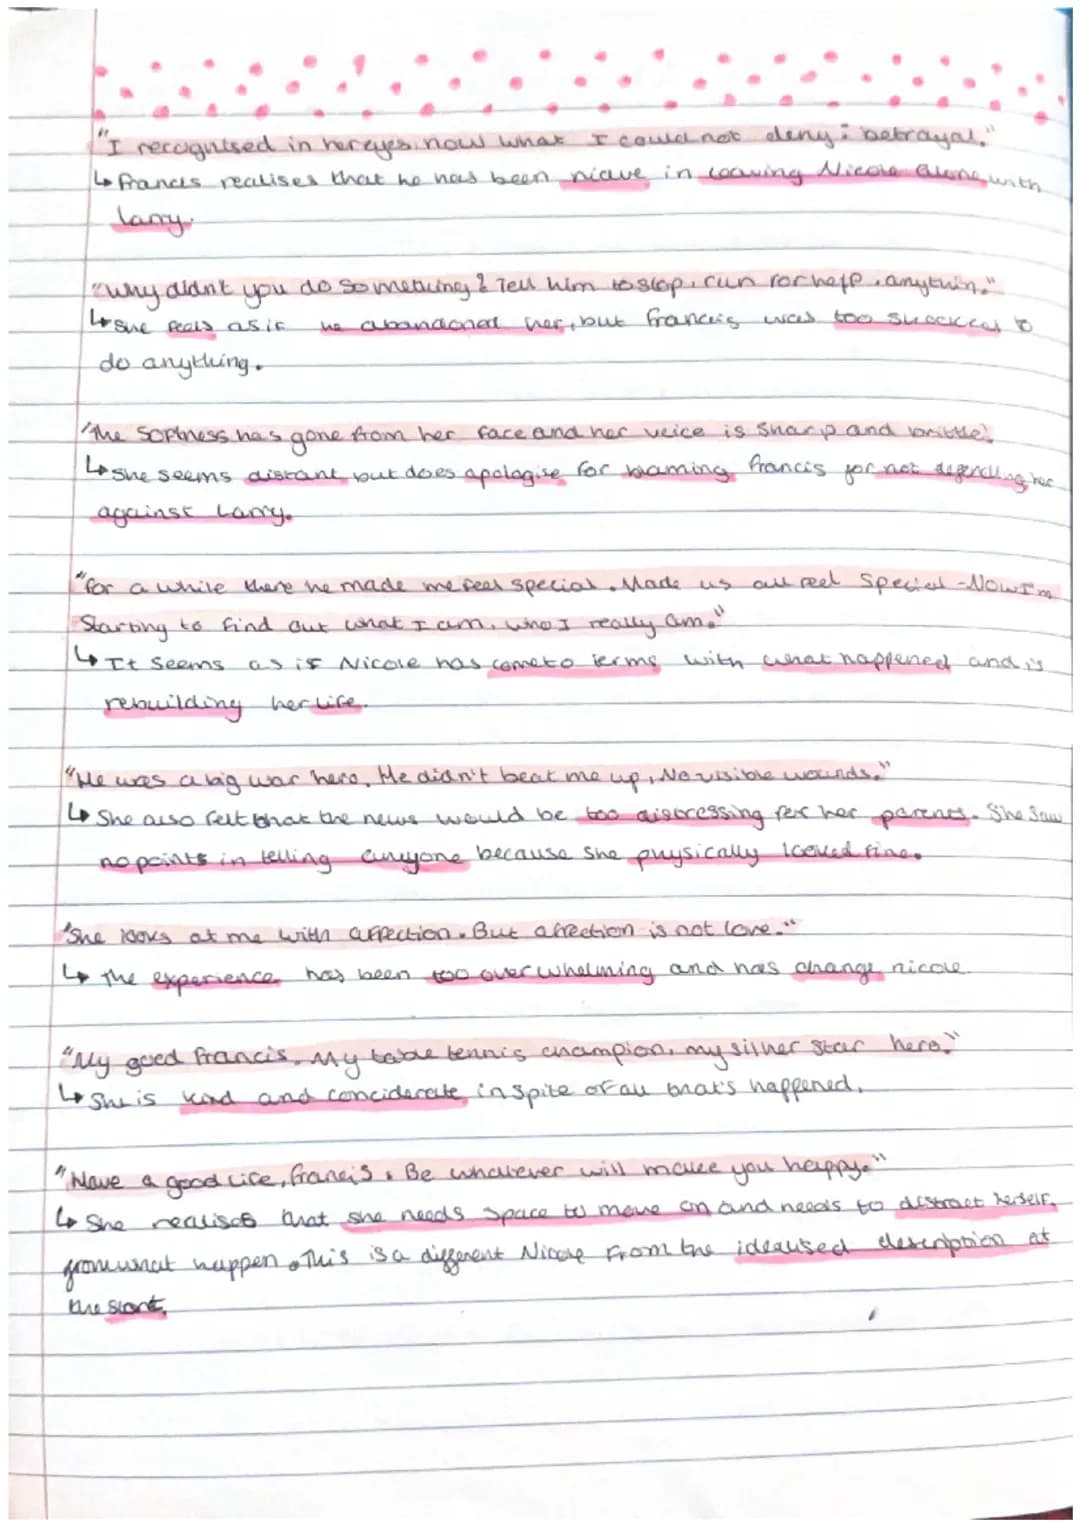 "I recognised in her eyes now what I could not deny: betrayal."
↳ Francis realises that he has been niave in leaving Nicole alone with
Larry.
"Why didn't you do something? Tell him to stop. run for help. anythin."
↳ She feels as if he abandoned her, but Francis was too shocked to
do anything.
"The softness has gone from her face and her voice is sharp and brittle."
↳ She seems distant but does apologise for blaming Francis for not defending her
against Larry.
"For a while there he made me feel special. Made us all feel special - Now I'm
Starting to find out what I am, who I really am."
↳ It seems as if Nicole has come to terms with what happened and is
rebuilding her life.
"He was a big war hero, He didn't beat me up, No visible wounds."
↳ She also felt that the news would be too distressing for her parents. She saw
no points in telling anyone because she physically looked fine.
"She looks at me with affection. But affection is not love."
↳ The experience has been too overwhelming and has change nicole.
"My good Francis. My table tennis champion. my silner star hero."
↳ She is kind and conciderate in spite of all that's happened.
"Have a good life, Francis. Be whatever will make you happy."
↳ She realises that she needs space to move on and needs to distract herself.
from what happen. This is a different Nicole from the idealised description at
the start.